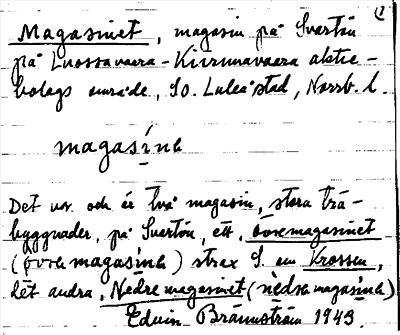 Magasinet, magasin på Svartön
på Luossavaara-Kiirunavaara aktie-
bolags område, SO. Luleå stad, Norrb. l.
magasínət
Det var och är två magasin, stora trä-
byggnader, på Svartön, ett, övremagasinet
(övrəmagasínət) strax S. om Krossen,
det andra, Nedremagasinet (nèdrəmagasínət)
Edvin Brännström 1943.